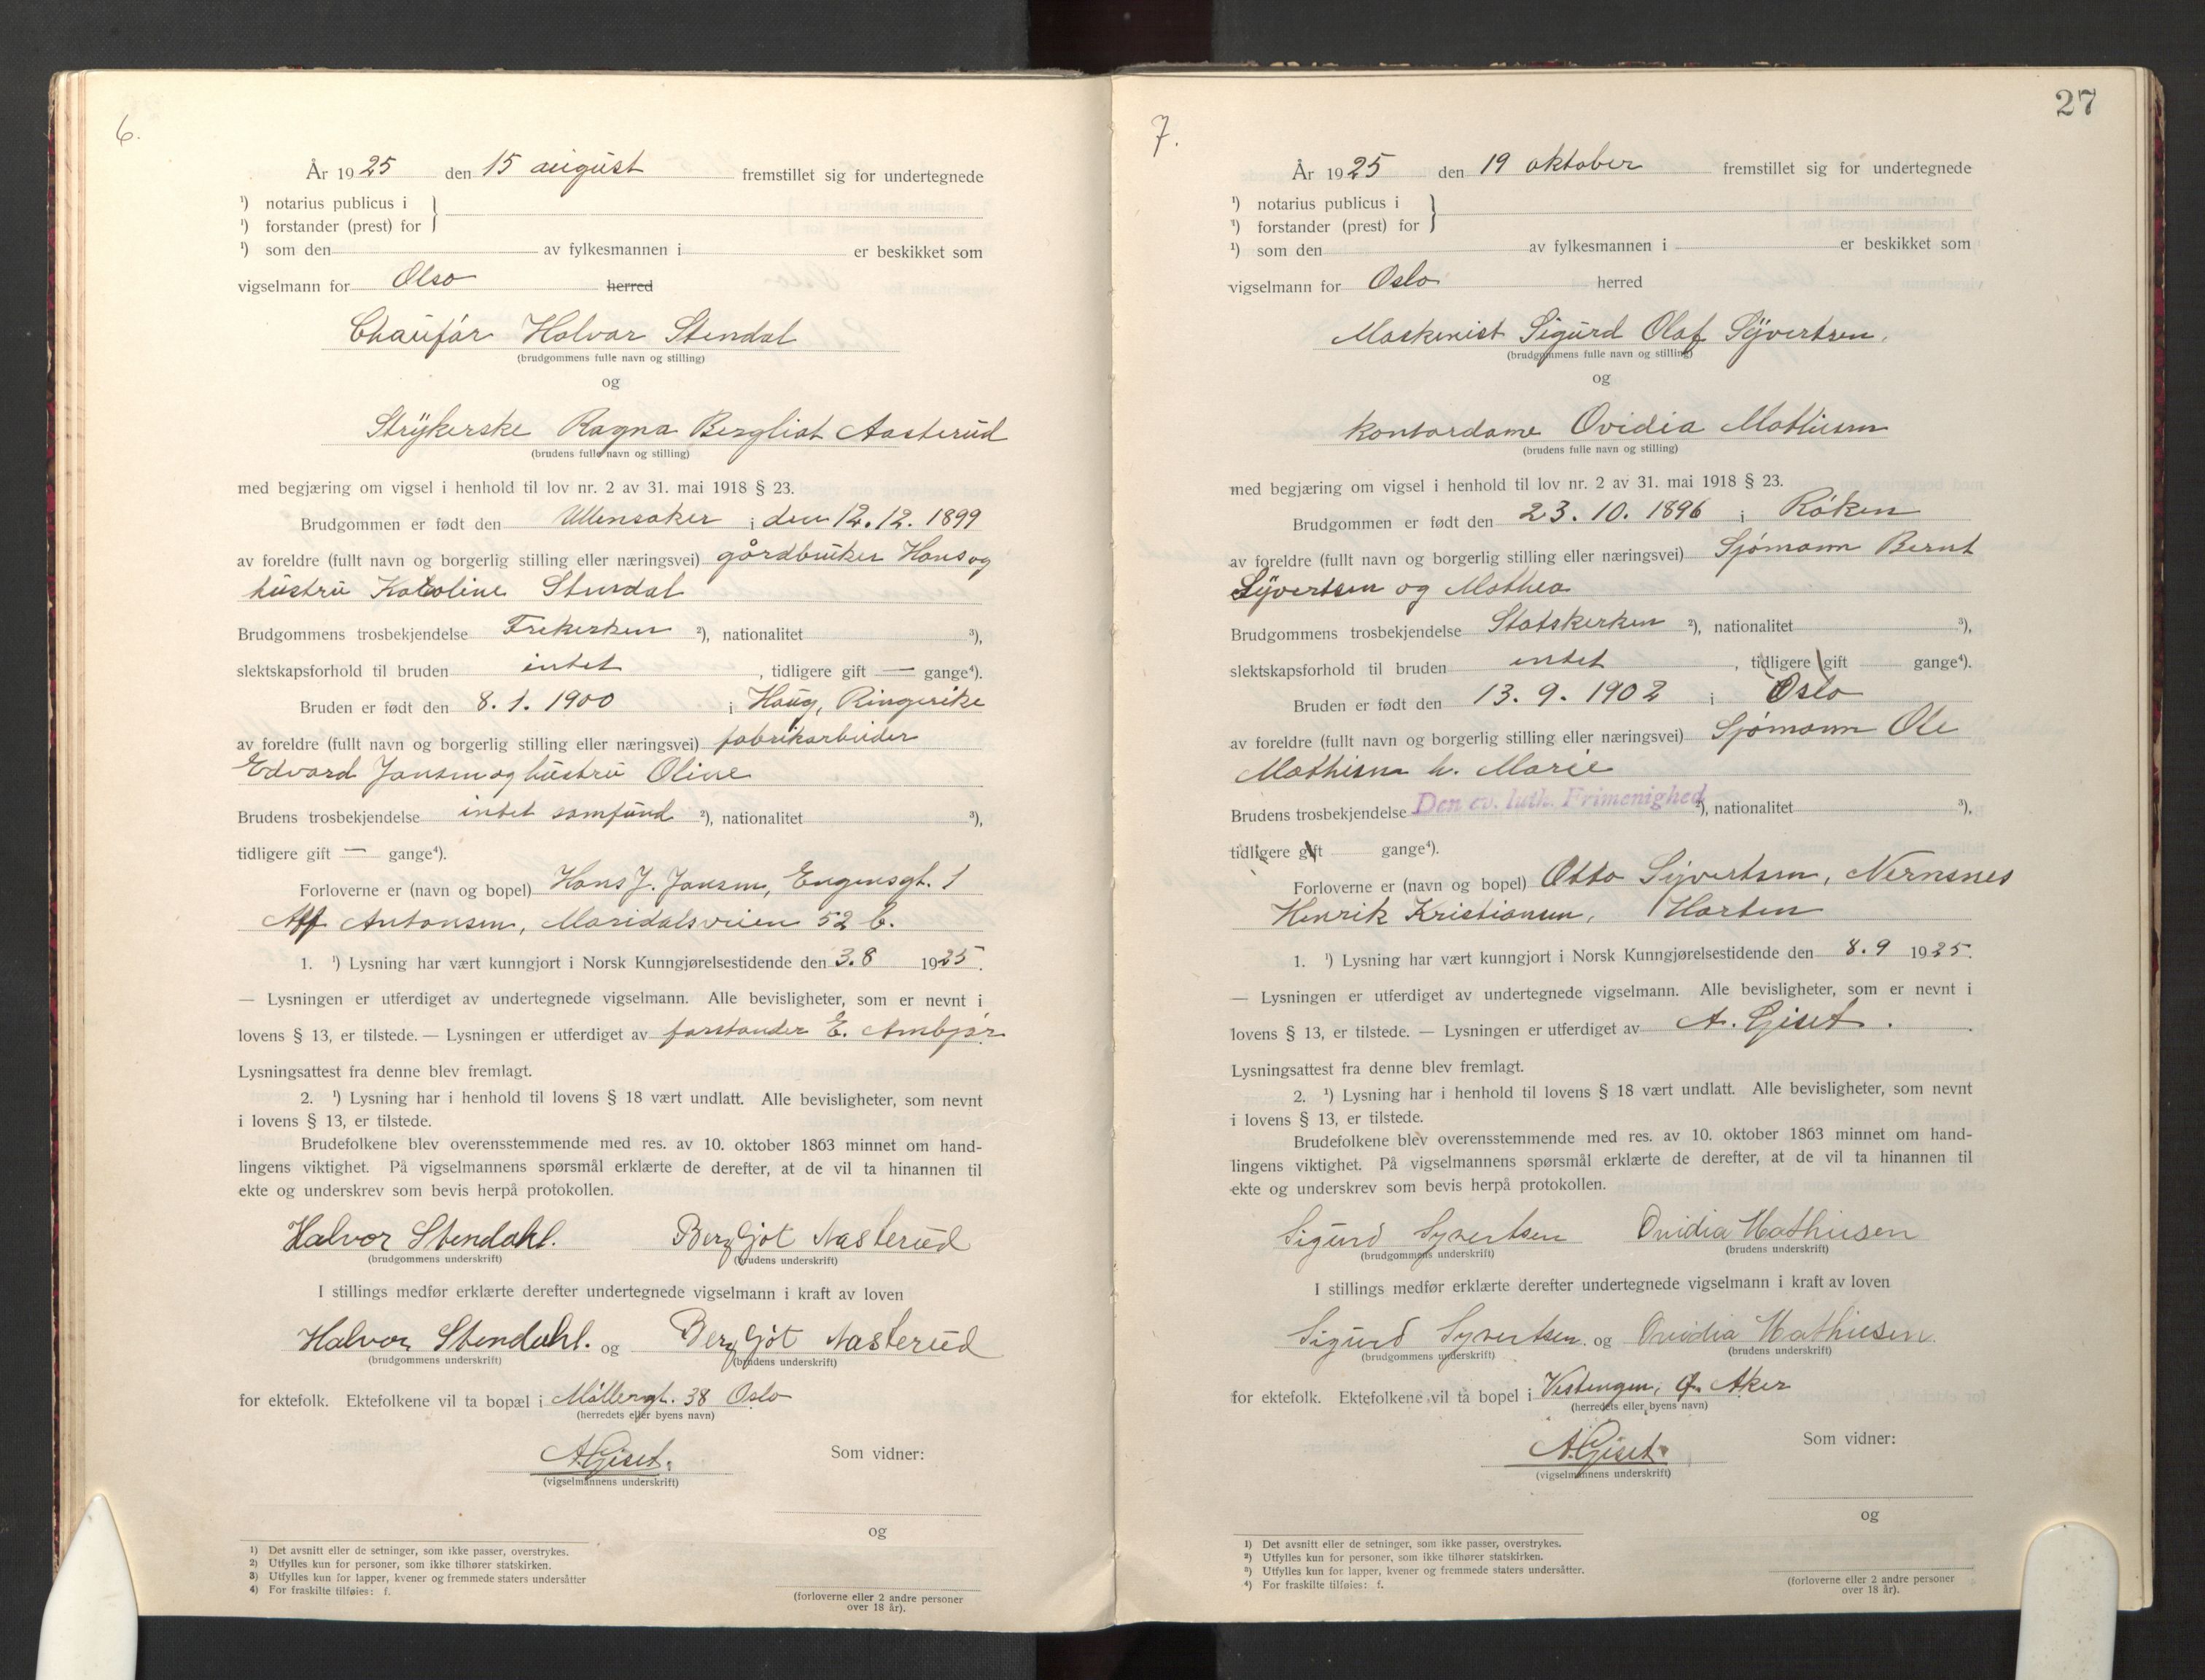 6.
År 1925 den 15 august fremstillet sig for undertegnede
¹) notarius publicus i
¹) forstander (prest) for
¹) som den av fylkesmannen i er beskikket som
vigselmann for Olso herred
Chaufør Halvor Stendal
(brudgommens fulle navn og stilling)
og
Strykerske Ragna Bergliot Aasterud
(brudens fulle navn og stilling)
med begjæring om vigsel i henhold til lov nr. 2 av 31. mai 1918 § 23.
Brudgommen er født den Ullensaker i den 12.12. 1899
av foreldre (fullt navn og borgerlig stilling eller næringsvei) gårdbruker Hans og
hustru Karoline Stendal
Brudgommens trosbekjendelse Frikirken ²), nationalitet ³),
slektskapsforhold til bruden intet , tidligere gift — gange⁴).
Bruden er født den 8. 1. 1900 i Haug, Ringerike
av foreldre (fullt navn og borgerlig stilling eller næringsvei) fabrikarbeider
Edvard Jansen og hustru Oline
Brudens trosbekjendelse intet samfund ²), nationalitet ³),
tidligere gift — gange⁴).
Forloverne er (navn og bopel) Hans J. Jansen, Eugensgt. 1
Alf Antonsen, Maridalsveien 52 b.
1. ¹) Lysning har vært kunngjort i Norsk Kunngjørelsestidende den 3.8 1925.
— Lysningen er utferdiget av undertegnede vigselmann. Alle bevisligheter, som er nevnt i
lovens § 13, er tilstede. — Lysningen er utferdiget av forstander E. Ambjør.
Lysningsattest fra denne blev fremlagt.
2. ¹) Lysning har i henhold til lovens § 18 vært undlatt. Alle bevisligheter, som nevnt
i lovens § 13, er tilstede.
Brudefolkene blev overensstemmende med res. av 10. oktober 1863 minnet om hand-
lingens viktighet. På vigselmannens spørsmål erklærte de derefter, at de vil ta hinannen til
ekte og underskrev som bevis herpå protokollen.
Halvor Stendahl. Bergljot Aasterud
(brudgommens underskrift) (brudens underskrift)
I stillings medfør erklærte derefter undertegnede vigselmann i kraft av loven
Halvor Stendahl. og Bergljot Aasterud
(brudgommens underskrift) (brudens underskrift)
for ektefolk. Ektefolkene vil ta bopæl i Møllergt. 38 Oslo
(herredets eller byens navn)
A. Giset.
(vigselmannens underskrift)
Som vidner:
og
(forloverne eller 2 andre personer
over 18 år).
1) Det avsnitt eller de setninger, som ikke passer, overstrykes.
2) Utfylles kun for personer, som ikke tilhører statskirken.
3) Utfylles kun for lapper, kvener og fremmede staters undersåtter
4) For fraskilte tilføies: f.
27
7.
År 1925 den 19 oktober fremstillet sig for undertegnede
¹) notarius publicus i
¹) forstander (prest) for
¹) som den av fylkesmannen i er beskikket som
vigselmann for Oslo herred
Maskinist Sigurd Olaf Syvertsen.
(brudgommens fulle navn og stilling)
og
kontordame Ovidia Mathisen
(brudens fulle navn og stilling)
med begjæring om vigsel i henhold til lov nr. 2 av 31. mai 1918 § 23.
Brudgommen er født den 23. 10. 1896 i Røken
av foreldre (fullt navn og borgerlig stilling eller næringsvei) Sjømann Bernt
Syvertsen og Mathea
Brudgommens trosbekjendelse Statskirken ²), nationalitet ³),
slektskapsforhold til bruden intet , tidligere gift gange⁴).
Bruden er født den 13. 9. 1902 i Oslo
av foreldre (fullt navn og borgerlig stilling eller næringsvei) Sjømann Ole
Mathisen h. Marie
Brudens trosbekjendelse Den ev. luth. Frimenighed ²), nationalitet ³),
tidligere gift gange⁴).
Forloverne er (navn og bopel) Otto Syvertsen, Nernsnes
Henrik Kristiansen, Horten
1. ¹) Lysning har vært kunngjort i Norsk Kunngjørelsestidende den 8.9 1925.
— Lysningen er utferdiget av undertegnede vigselmann. Alle bevisligheter, som er nevnt i
lovens § 13, er tilstede. — Lysningen er utferdiget av A. Giset.
Lysningsattest fra denne blev fremlagt.
2. ¹) Lysning har i henhold til lovens § 18 vært undlatt. Alle bevisligheter, som nevnt
i lovens § 13, er tilstede.
Brudefolkene blev overensstemmende med res. av 10. oktober 1863 minnet om hand-
lingens viktighet. På vigselmannens spørsmål erklærte de derefter, at de vil ta hinannen til
ekte og underskrev som bevis herpå protokollen.
Sigurd Syvertsen Ovidia Mathisen
(brudgommens underskrift) (brudens underskrift)
I stillings medfør erklærte derefter undertegnede vigselmann i kraft av loven
Sigurd Syvertsen. og Ovidia Mathisen.
(brudgommens underskrift) (brudens underskrift)
for ektefolk. Ektefolkene vil ta bopel i Vestengen, Ø. Aker
(herredets eller byens navn)
A. Giset.
(vigselmannens underskrift)
Som vidner:
og
(forloverne eller 2 andre personer
over 18 år).
1) Det avsnitt eller de setninger, som ikke passer, overstrykes.
2) Utfylles kun for personer, som ikke tilhører statskirken.
3) Utfylles kun for lapper, kvener og fremmede staters undersåtter.
4) For fraskilte tilføies: f.